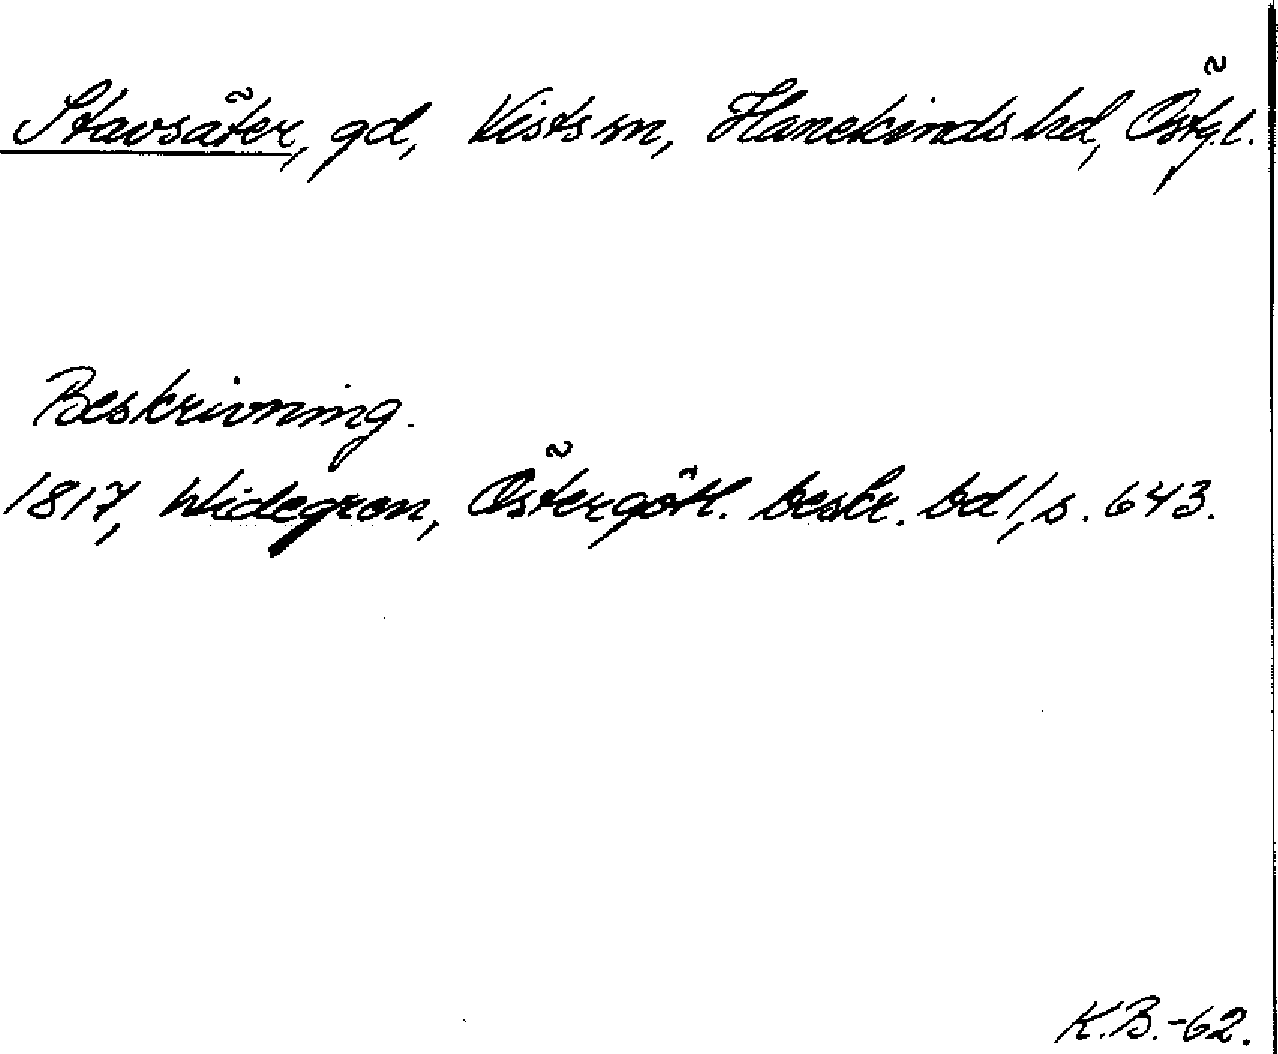 Stavsäter, gd, Vists sn, Hanekinds hd, Östg.l.
Beskrivning.
1817, Widegren, Östergötl. beskr. bd 1, s. 643.
K.B.-62.